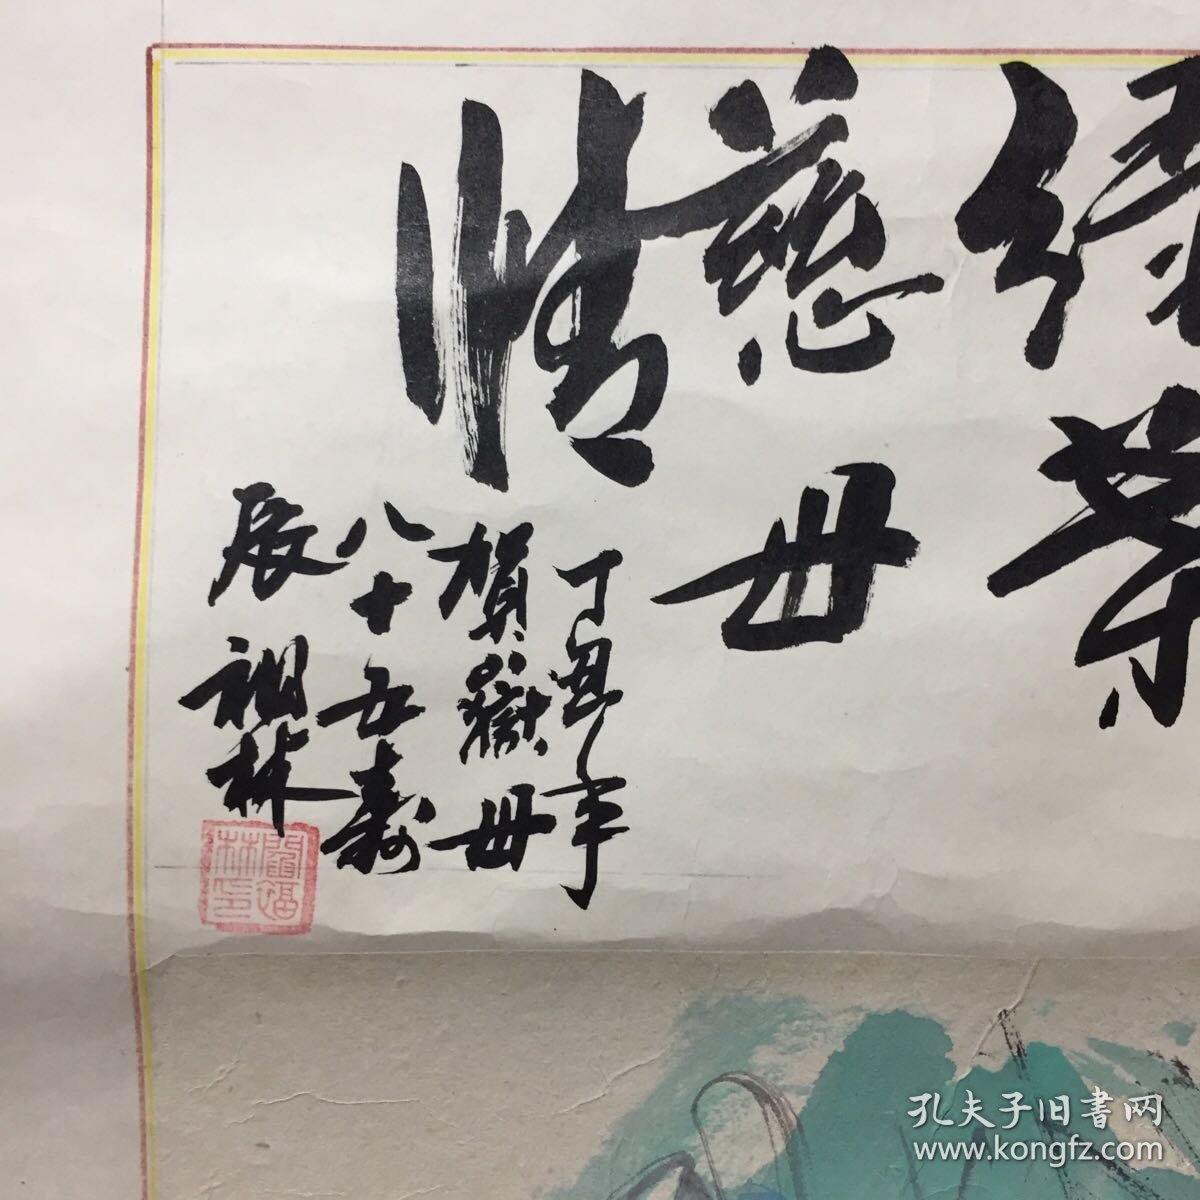 绿葉
慈母
情
丁丑年
賀嶽母
八十五壽
辰 福林
閻福
林印
孔夫子旧書网
www.kongfz.com